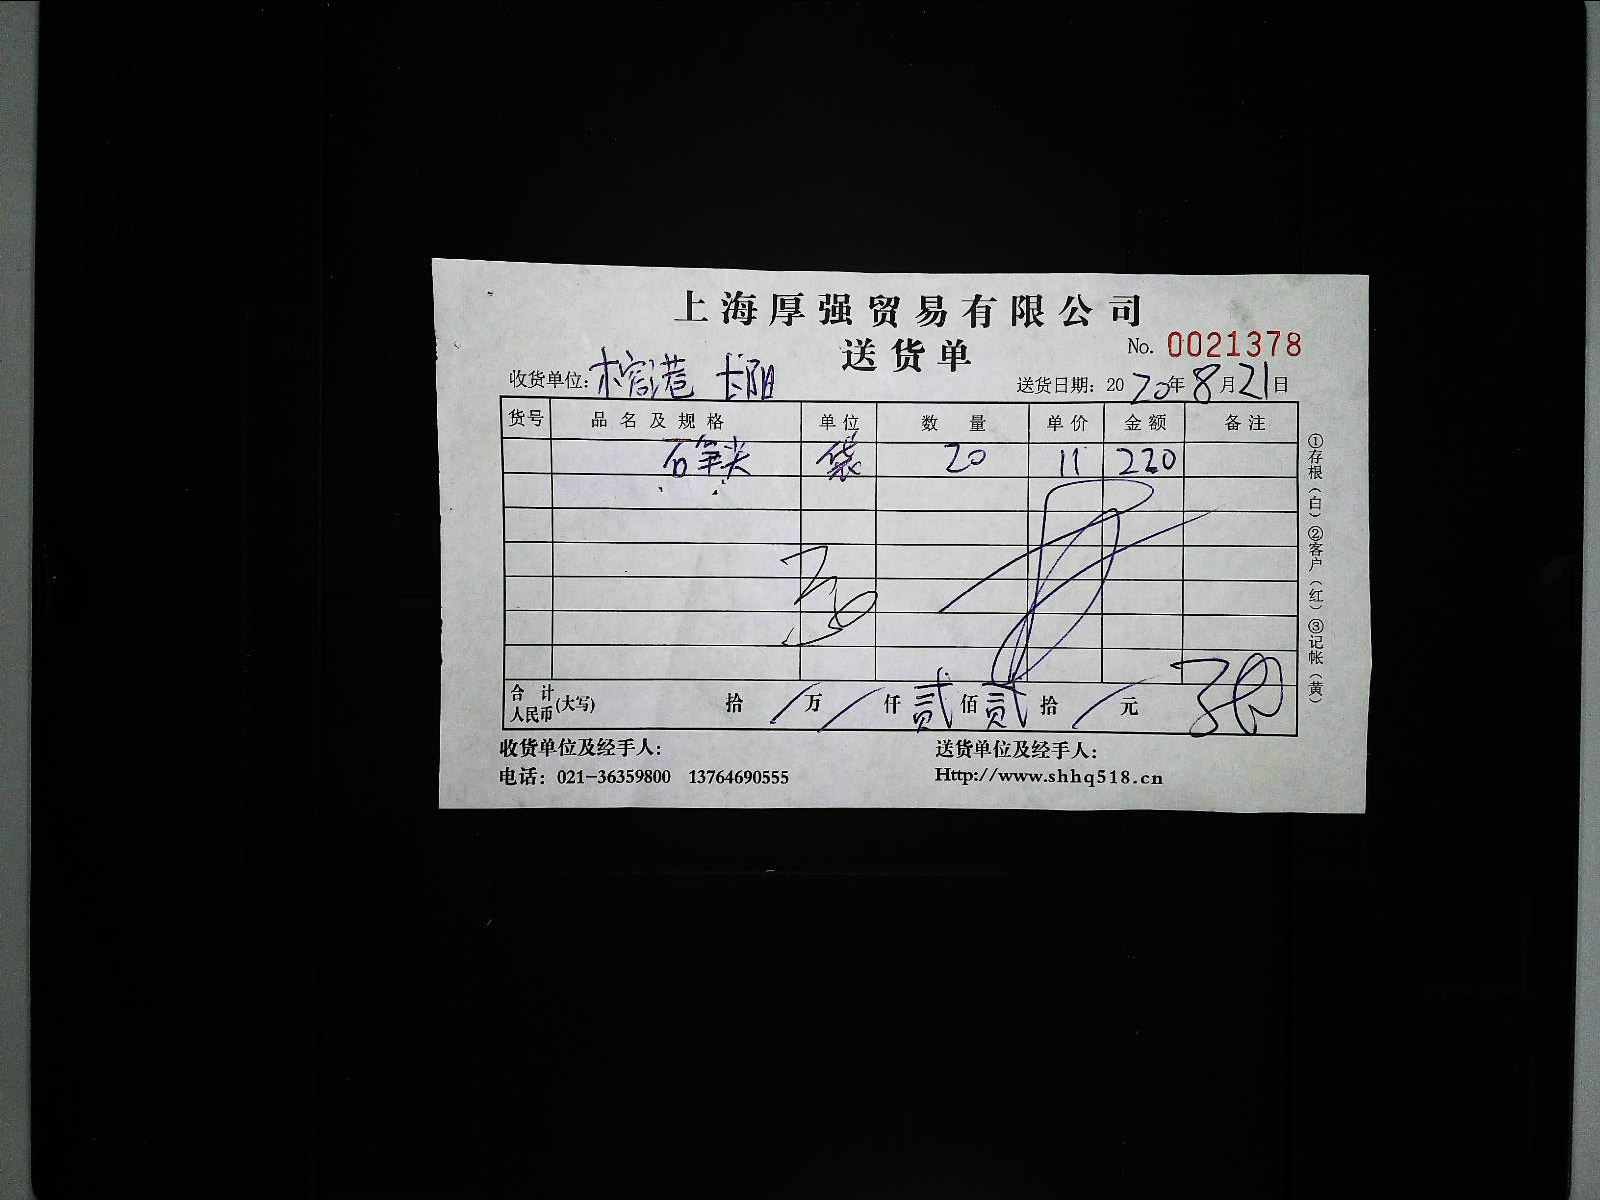 上海厚强贸易有限公司
送货单
No. 0021378
收货单位: 木 港 长阳
送货日期: 2020年8月21日
货号 品名及规格 单位 数量 单价 金额 备注
石笔尖 袋 20 11 220
合计人民币(大写) 拾 / 万 / 仟 贰 佰 贰 拾 / 元
收货单位及经手人: 送货单位及经手人:
电话: 021-36359800 13764690555 Http://www.shhq518.cn
①存根(白)②客户(红)③记帐(黄)